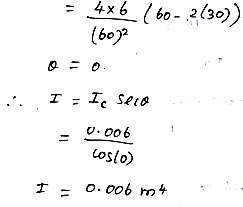 = 4×6/(60)² (60 - 2(30))
θ = 0.
∴ I = I_c secθ
= 0.006/cos(0)
I = 0.006 m⁴